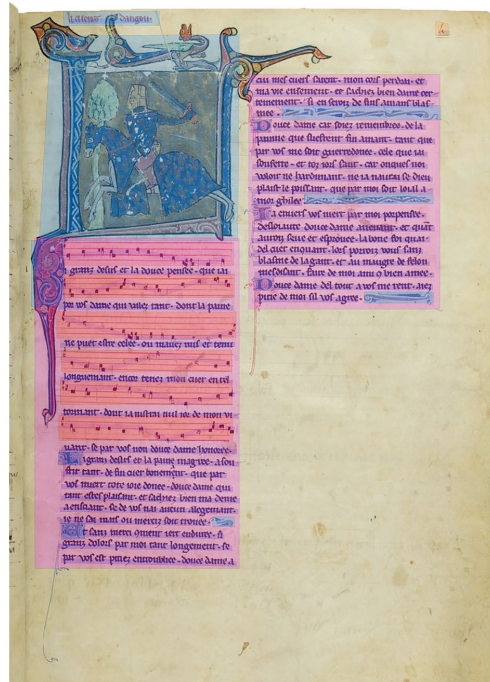 Li cuens dangou.
i granz desirs et la douce pensee. que iai
por vos dame qui valez tant. dont la paine
ne puet estre celee. ou mavez mis et tenu
longuement. encor tenez mon cuer en tel
torment. dont ia nistrai nul ior de mon vi
uant. se par vos non douce dame honoree.
Li granz desirs et la paine
frir tant. de fin cuer bonement. que par
vos mert tote ioie donee. douce dame qui
tant estes plaisant. et sachiez bien ma dame
a enscient. se de vos nai aucun alegemant.
ie ne sai mais ou merci soit trouee.
Et sanz merci
granz dolors par moi tant longement. se
par vos est pitiez entroubliee. douce dame a
cui mes cuers satent. mon cors perdrai. et
ma vie ensement. et sachiez bien dame cer
teinement. si en seroiz de fins amans blas
mee.
Douce dame car soiez remenbree. de la
painne que sueffrent fin amant. tant que
par vos me soit guerredonee. cele que iai
soufferte. et toz iors sant. car onques not
voloir ne hardimant. ne ia naurai se dieu
plaist le poissant. que par moi soit loial a
mor ghilee.
Ia envers vos niert par moi porpensee.
desloiaute douce dame avenant. et quant
auroiz seue et esprouee. la bone foi quar
dei cuer enquant. lors porroiz vous sanz
blasme de la gant. et au maugre de felon
mesdisant. faire de moi ami o bien amee.
Douce dame del tout a vos me rent. aiez
pitie de moi sil vos agree.